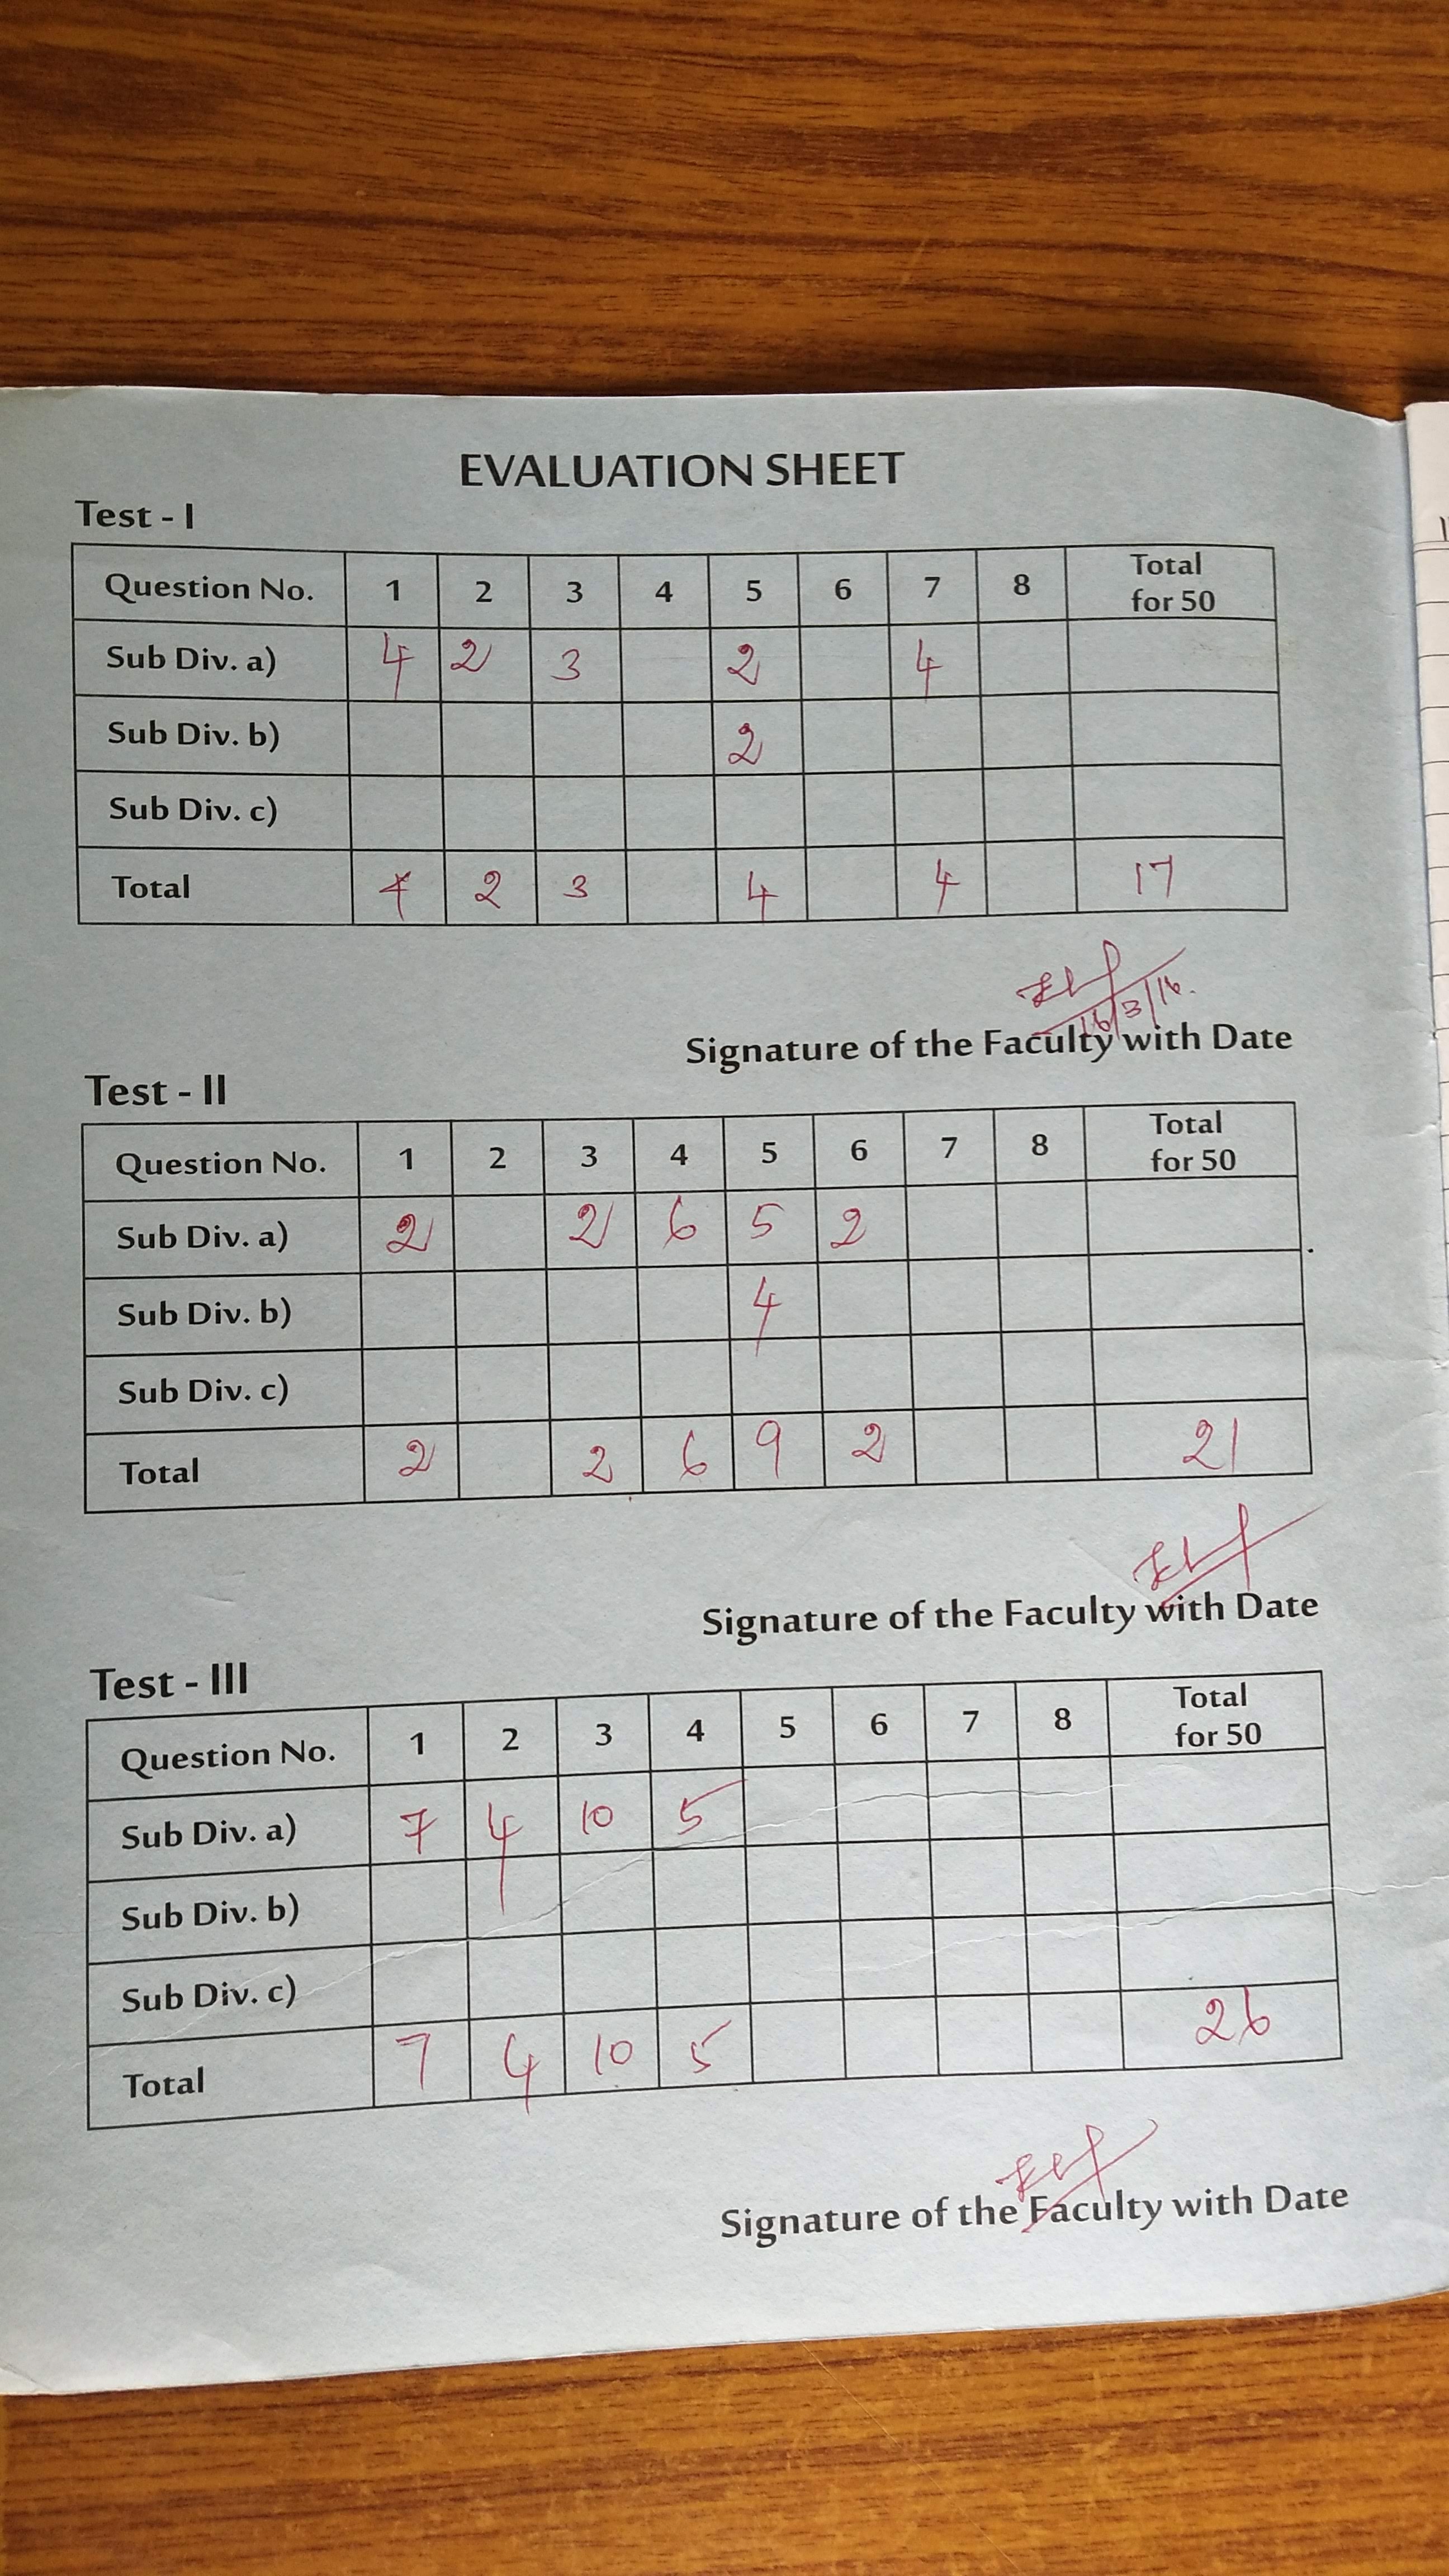 EVALUATION SHEET
Test - I
Question No. 1 2 3 4 5 6 7 8 Total for 50
Sub Div. a) 4 2 3 2 4
Sub Div. b) 2
Sub Div. c)
Total 4 2 3 4 4 17
16/3/16.
Signature of the Faculty with Date
Test - II
Question No. 1 2 3 4 5 6 7 8 Total for 50
Sub Div. a) 2 2 6 5 2
Sub Div. b) 4
Sub Div. c)
Total 2 2 6 9 2 21
Signature of the Faculty with Date
Test - III
Question No. 1 2 3 4 5 6 7 8 Total for 50
Sub Div. a) 7 4 10 5
Sub Div. b)
Sub Div. c)
Total 7 4 10 5 26
Signature of the Faculty with Date